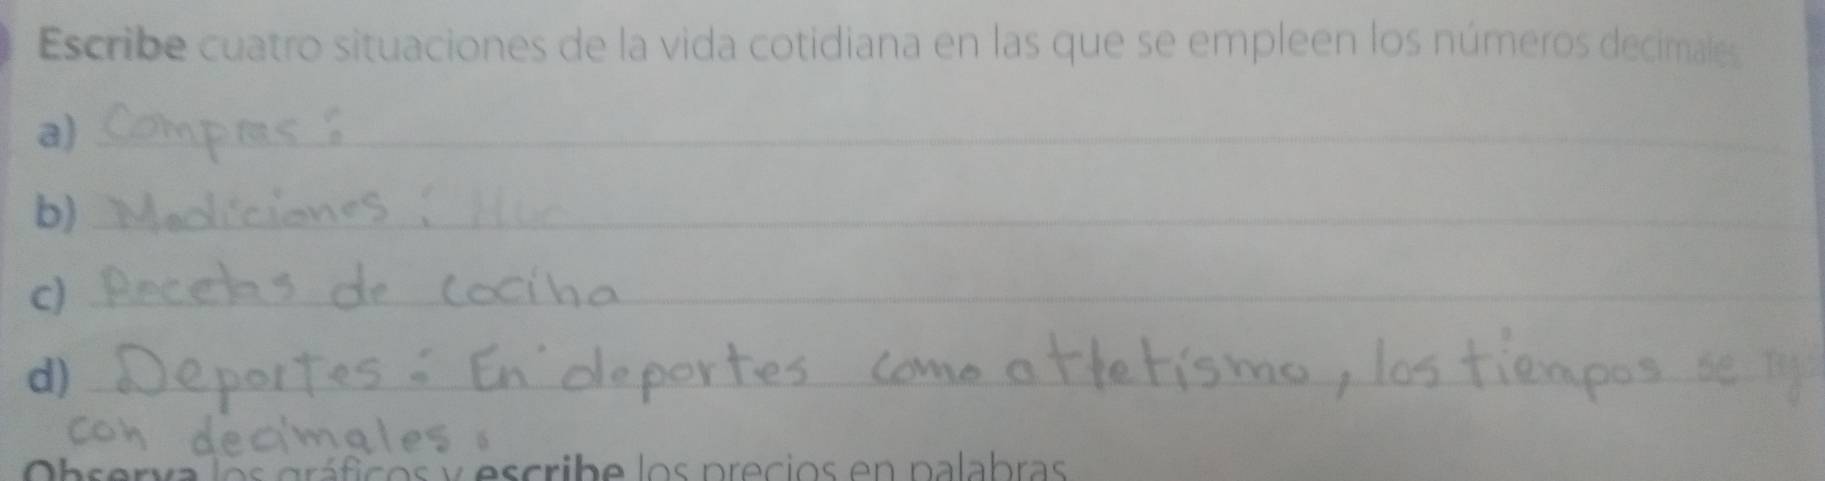 Escribe cuatro situaciones de la vida cotidiana en las que se empleen los números decimales
a) Compras:
b) Mediciones:
c) Recetas de cocina
d) Deportes: En deportes como atletismo, los tiempos se
con decimales.
Observa los gráficos y escribe los precios en palabras